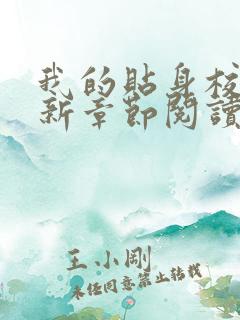 我的貼身校
新章節閱讀
王小剛
未经同意禁止转载